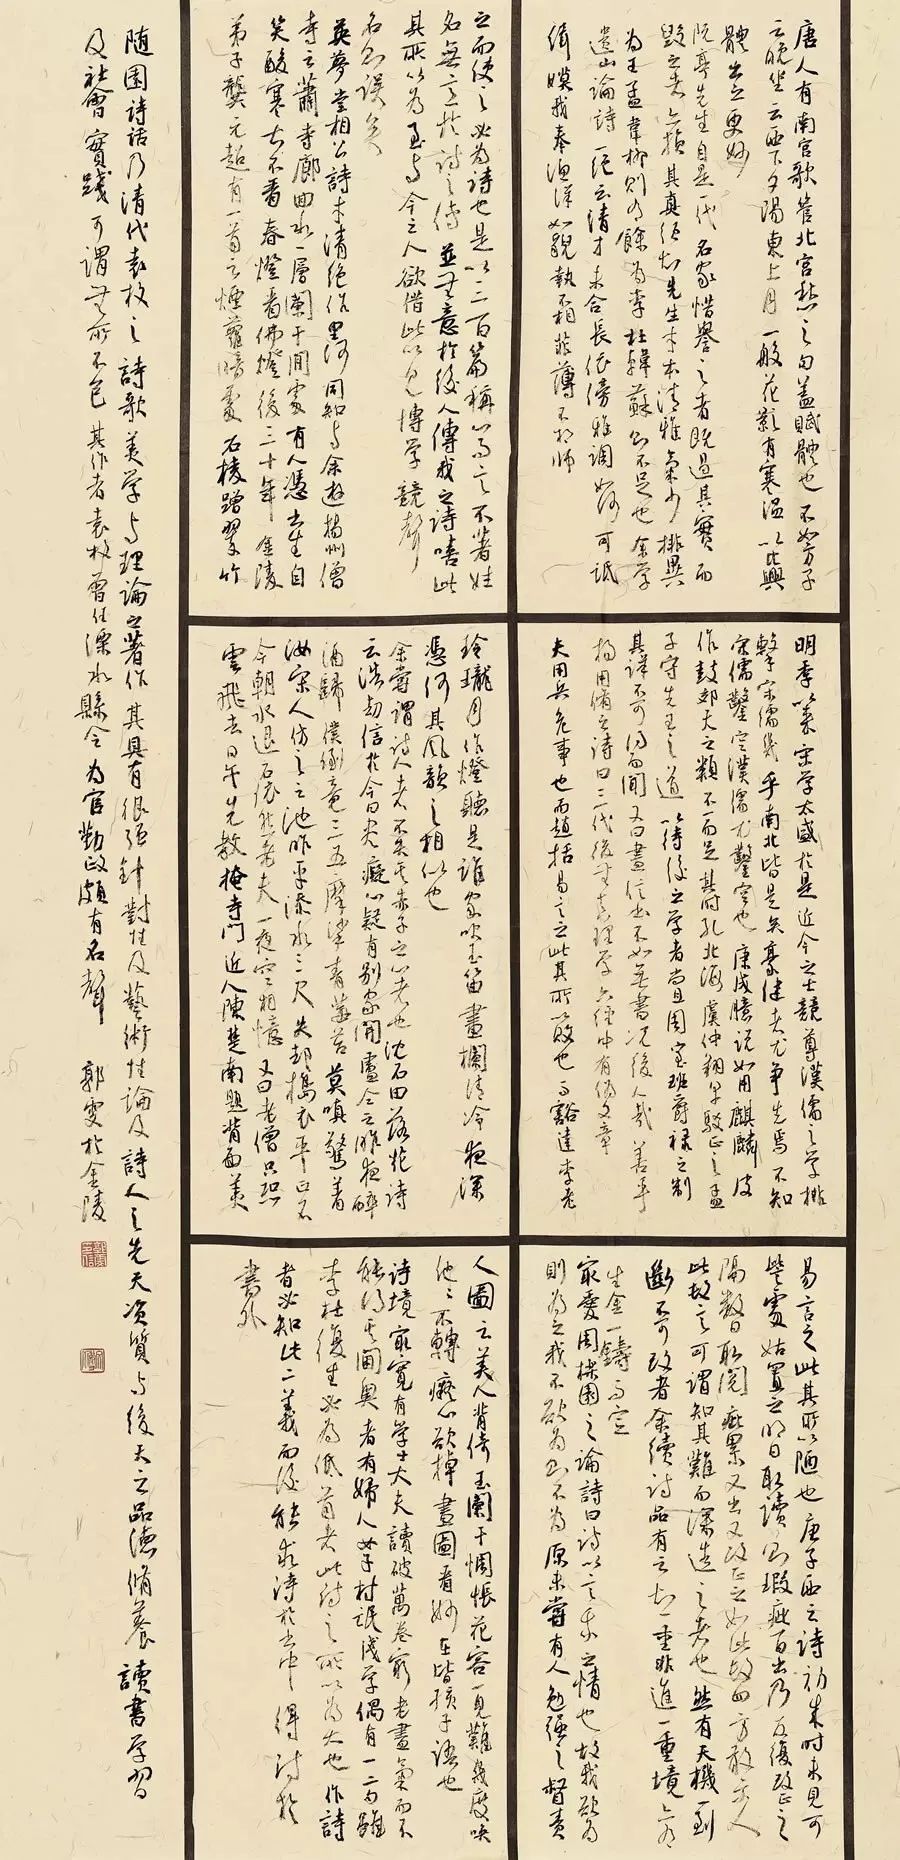 唐人有南宮歌管北宮愁之句蓋賦體也不如方子
云晚坐云西下夕陽東上月一般花影有寒温以興
體出之更妙
阮亭先生自是一代名家惜譽之者既過其實而
毀之者亦損其真須知先生才本清雅氣少排奡
為王孟韋柳則有餘為李杜韓蘇則不足也余學
遺山論詩一絕云清才未合長依傍雅調如何可詆
我奉漁洋如貌執不相菲薄不相師
明季以來宋學太盛於是近今之士競尊漢儒之學排
擊宋儒幾乎南北皆是矣豪健者尤爭先焉不知
宋儒鑿空漢儒尤鑿空也康成臆說如用麒麟皮
作鼓郊天之類不一而足其時孔北海虞仲翔早駁正之孟
子守先王之道以待後之學者尚且周室班爵祿之制
其詳不可得而聞又曰盡信書不如無書況後人哉善乎
楊用脩之詩曰三代後無真理學六經中有偽文章
夫用兵危事也而趙括易言之此其所以敗也而豁達李老
易言之此其所以陋也唐子西之詩初成時未見可
訾處姑置之明日取讀則瑕疵百出乃反復改正之
隔數日取閱疵累又出又改正之如此數四方敢示人
此數言可謂知其難而深造之者也然有天機一到
斷不可改者余續詩品有云知一重非進一重境亦有
生金一鑄而定
最愛周櫟園之論詩曰詩以言我之情也故我欲為
則為之我不欲為則不為原未嘗有人勉強之督責
之而使之必為詩也是以三百篇稱心而言不著姓
名無意於詩之傳並無意於後人傳我之詩嘻此
其所以為至與今之人欲借此以見博學競聲
名則誤矣
英夢堂相公詩才清絕作里河同知與余遊揚州僧
寺云蕭寺廊回水一層闌干閒處有人憑書生自
笑酸寒甚不看春燈看佛燈後二十年金陵
弟子龔元超有一首云煙蘿暗處石棱蹭翠竹
玲瓏月作燈聽是誰家吹玉笛畫欄清冷夜深
憑何其風韻之相似也
余嘗謂詩人者不失其赤子之心者也沈石田落花詩
云浩劫信於今日盡癡心疑有別家開盧仝之雎夜醉
酒歸僕倒竟三五摩挲青莓苔莫嗔驚著
汝宋人仿之云池昨平添水三尺失卻搗衣平正石
今朝水退石依然老夫一夜空相憶又曰老僧只恐
雲飛去日午先教掩寺門近人陳楚南題背面美
人圖云美人背倚玉闌干惆悵花容一見難幾度喚
他他不轉癡心欲掉畫圖看妙在皆孩子語也
詩境最寬有學士大夫讀破萬卷窮老盡氣而不
能得其閫奧者有婦人女子村氓淺學偶有一二句雖
李杜復生必為低首者此詩之所以為大也作詩
者必知此二義而後能求詩於書中得詩於
書外
随園詩話乃清代袁枚之詩歌美学与理論之著作其具有很强針對性及藝術性論及詩人之先天資質与後天之品德脩養讀書学習
及社會實踐可謂無所不包其作者袁枚曾任溧水縣令為官勤政頗有名聲 郭雯於金陵